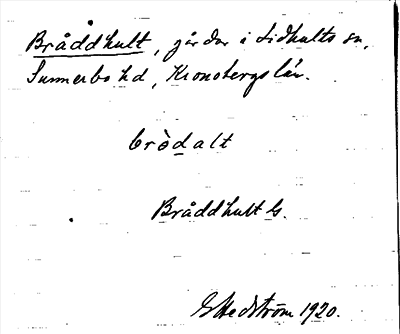 Bråddhult, gårdar i Lidhults sn,
Sunnerbo hd, Kronobergs län.
bròdalt
Bråddhult G.
G Hedström 1920.